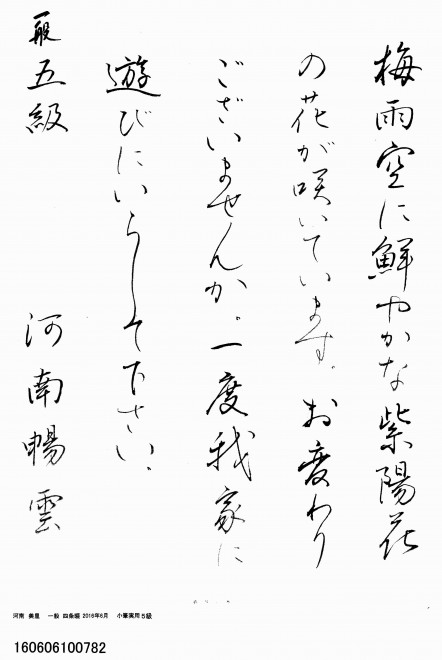 梅雨空に鮮やかな紫陽花
の花が咲いています。お変わり
ございませんか。一度我家に
遊びにいらして下さい。
一般 五級 河南暢雲
河南 美里 一般 四条畷 2016年6月 小筆実用5級
160606100782